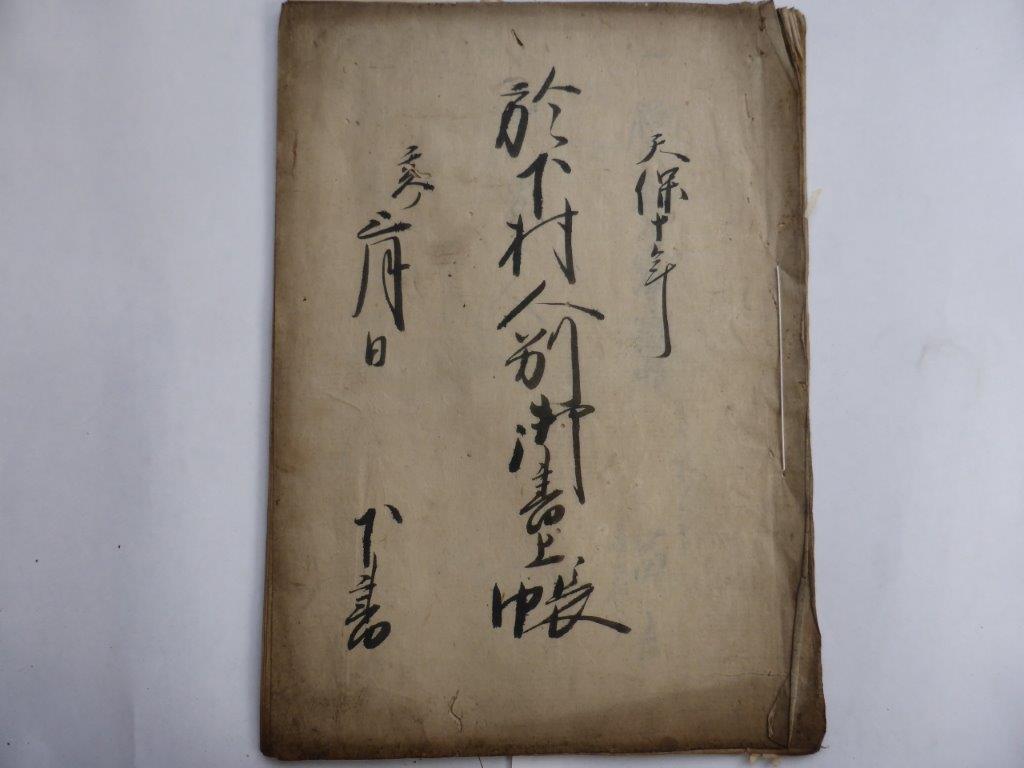 天保十年
於下村人別御書上帳
亥ノ三月日
下書